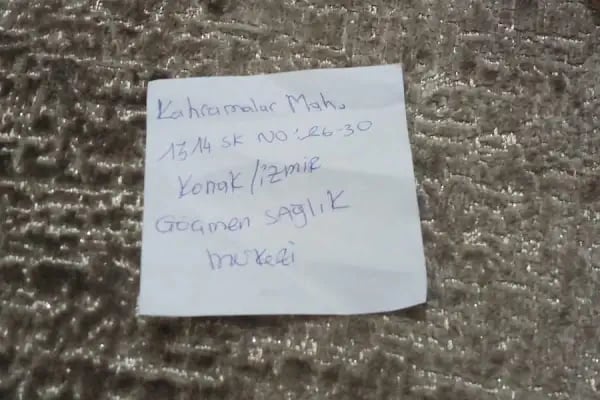 Kahramalar Mah.
1314 SK NO: 26-30
Konak/izmir
Göçmen SAĞLIK
merkezi